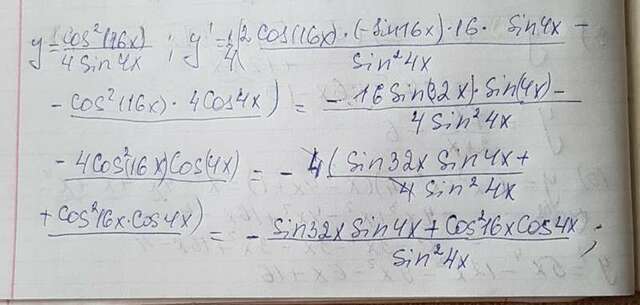 y = cos²(16x) / 4 sin 4x ; y' = 1/4 (2 cos(16x)·(-sin 16x)·16· sin 4x - / sin² 4x
- cos²(16x)·4 cos 4x) = -16 sin(32x)·sin(4x) - / 4 sin² 4x
- 4cos²(16x)cos(4x) = - 4(sin 32x sin 4x + / 4 sin² 4x
+ cos² 16x·cos 4x) = - sin 32x sin 4x + cos² 16x cos 4x / sin² 4x ;